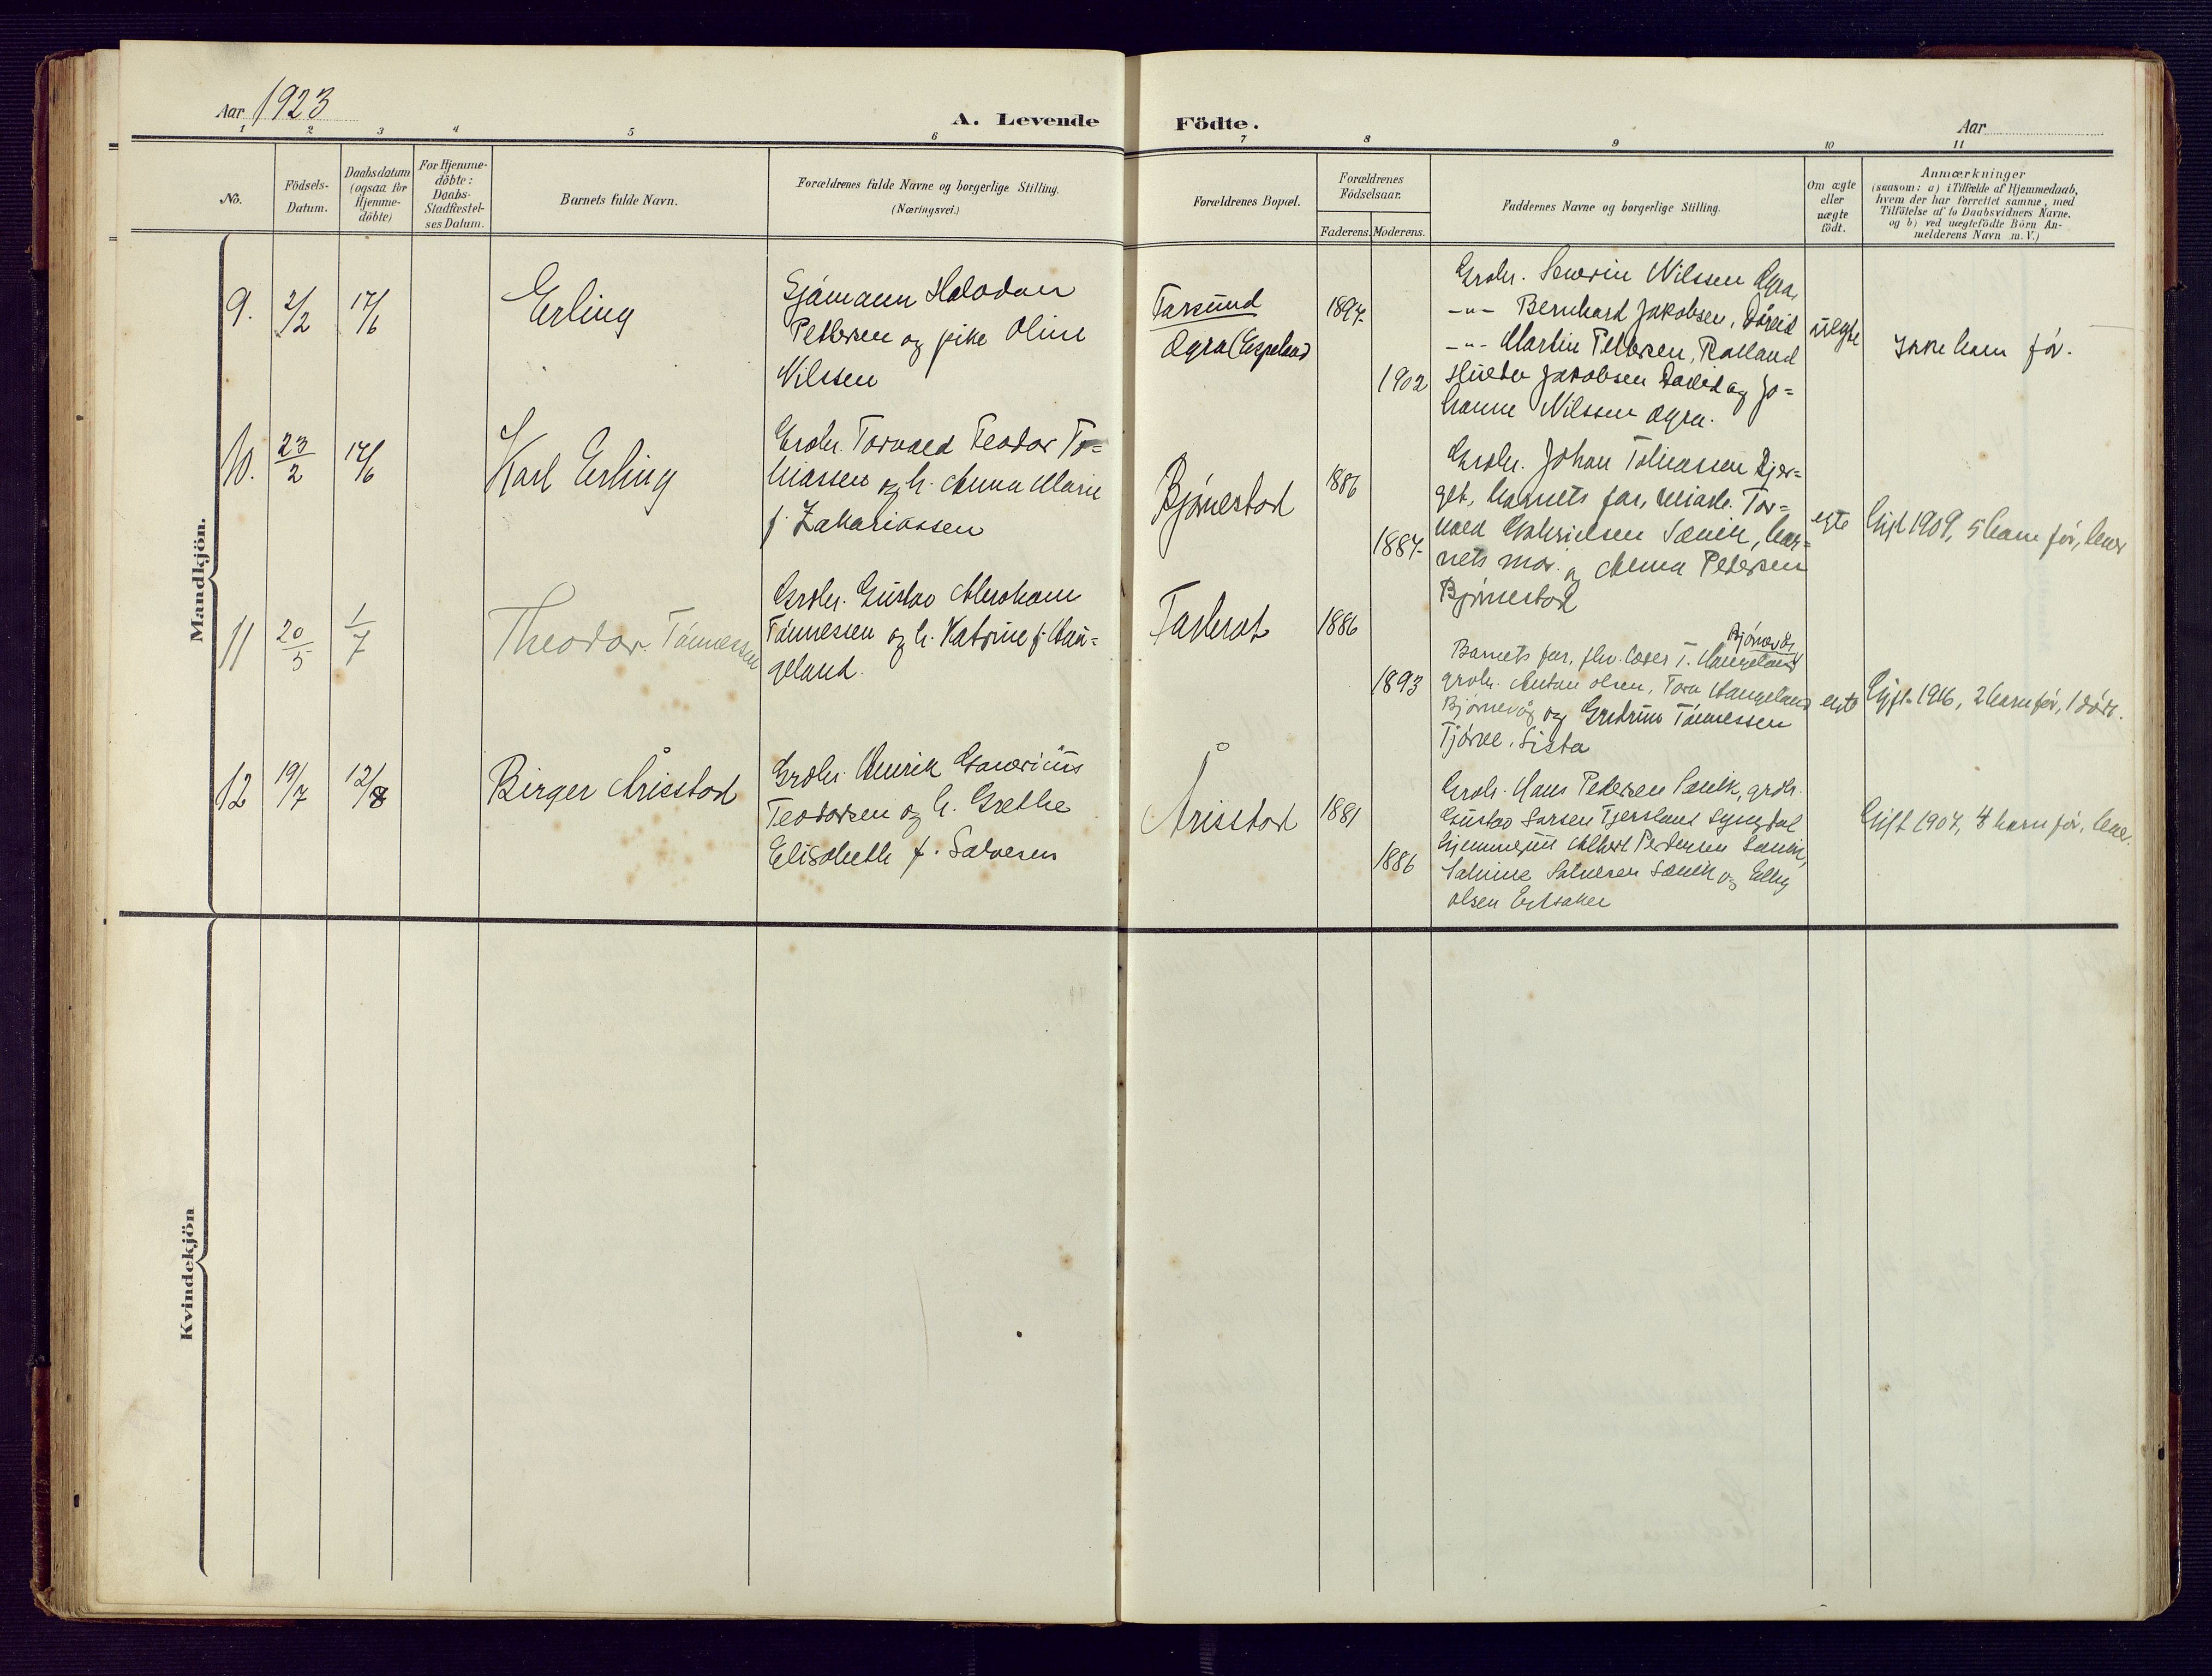 Aar 1923
A. Levende Födte.
Aar
1 2 3 4 5 6 7 8 9 10 11
No.
Födsels-
Datum.
Daabsdatum
(ogsaa for
Hjemme-
döbte)
For Hjemme-
döbte:
Daabs-
Stadfæstel-
ses Datum.
Barnets fulde Navn.
Forældrenes fulde Navne og borgerlige Stilling.
(Næringsvei.)
Forældrenes Bopæl.
Forældrenes
Födselsaar.
Faderens. Moderens.
Faddernes Navne og borgerlige Stilling.
Om ægte
eller
uægte
födt.
Anmærkninger
(saasom: a) i Tilfælde af Hjemmedaab,
hvem der har forrettet samme, med
Tilföielse af to Daabsvidners Navne,
og b) ved uægtefödte Börn An-
melderens Navn m. V.)
Mandkjön.
9. 2/2 17/6
Erling
Sjömann Halvdan
Pettersen og pike Oline
Nilssen
Farsund
Øgra (Espeland)
1897
1902
Grdbr. Severin Nilssen Øgra,
-"- Bernhard Jakobsen, Døreid
-"- Martin Pettersen, Rolland
Hulda Jakobsen Døreid og Jo-
hanne Nilssen Øgra.
uegte
Ikke barn för.
10. 23/2 17/6
Karl Erling
Grdbr. Torvald Teodor To-
biassen og h. Anna Marie
f. Zakariassen
Bjørnestad
1886
1887
Grdbr. Johan Tobiassen Bjer-
get, barnets far, Tor-
vald Gabrielsen Sævik, bar-
nets mor. og Anna Petersen
Bjørnestad
egte
Gift 1909, 5 barn för, lever
11 20/5 1/7
Theodor. Tönnessen
Grdbr. Gustav Abraham
Tönnessen og h. Katrine f. Hau-
geland.
1886
1893
Bjørnevåg
Barnets far, T. Haugeland
grdbr. Anton Olsen, Tora Haugeland
Bjørnevåg og Gudrun Tönnessen
Tjørve, Lista
egte
Gift 1916, 2 barn för, 1 död.
12 19/7 12/8
Birger Årisstad
Grdbr. Henrik Severinus
Teodorsen og h. Grethe
Elisabeth f. Salvesen
Årisstad
1881
1886
Grdbr. Hans Pedersen Sævik, grdbr.
Gustav Larsen Tjersland Lyngdal
Hjemmegut Albert Pedersen Sævik,
Salvesen Sævik og Elly
Olsen
Gift 1907, 4 barn för, lever.
Kvindekjön